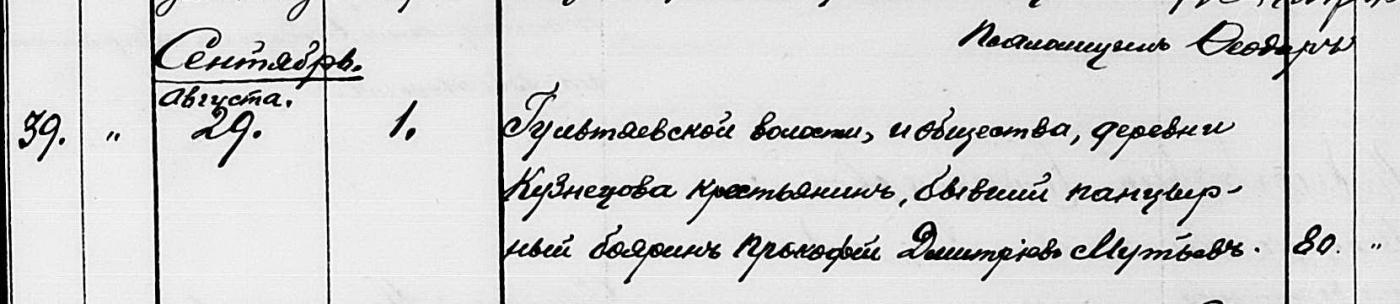 Псаломщикъ Ѳеодоръ
Сентябрь.
Августа.
39. " 29. 1. Гультяевской волости, и общества, деревни
Кузнецова крестьянинъ, бывший панцыр-
ный бояринъ Прокофий Дмитріевъ Мутьевъ. 80. "